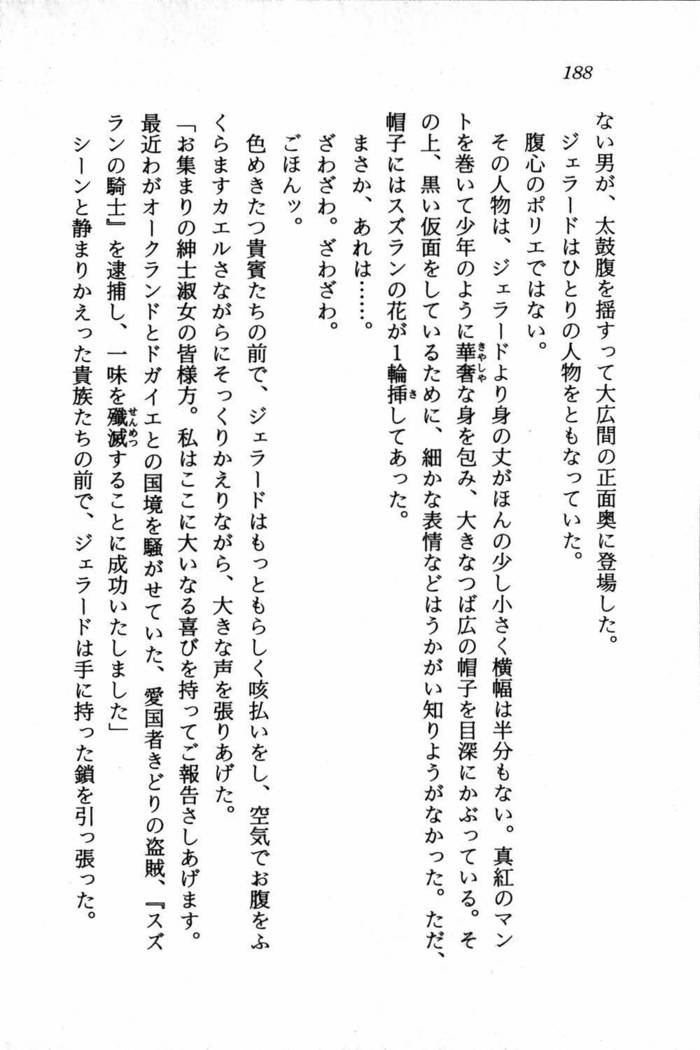 188
ない男が、太鼓腹を揺すって大広間の正面奥に登場した。
ジェラードはひとりの人物をともなっていた。
腹心のポリエではない。
その人物は、ジェラードより身の丈がほんの少し小さく横幅は半分もない。真紅のマン
トを巻いて少年のように華奢な身を包み、大きなつば広の帽子を目深にかぶっている。そ
の上、黒い仮面をしているために、細かな表情などはうかがい知りようがなかった。ただ、
帽子にはスズランの花が１輪挿してあった。
まさか、あれは……。
ざわざわ。ざわざわ。
ごほんッ。
色めきたつ貴賓たちの前で、ジェラードはもっともらしく咳払いをし、空気でお腹をふ
くらますカエルさながらにそっくりかえりながら、大きな声を張りあげた。
「お集まりの紳士淑女の皆様方。私はここに大いなる喜びを持ってご報告さしあげます。
最近わがオークランドとドガイエとの国境を騒がせていた、愛国者きどりの盗賊、『スズ
ランの騎士』を逮捕し、一味を殲滅することに成功いたしました」
シーンと静まりかえった貴族たちの前で、ジェラードは手に持った鎖を引っ張った。